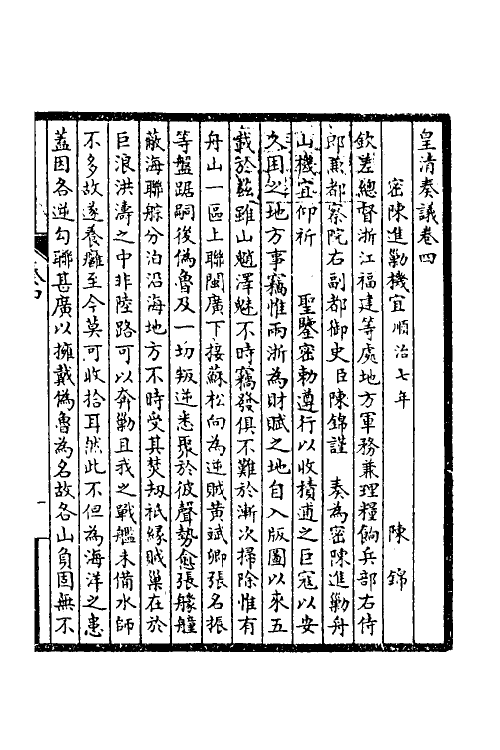 皇清奏議卷四
密陳進勦機宜順治七年 陳錦
欽差總督浙江福建等處地方軍務兼理糧餉兵部右侍
郎兼都察院右副都御史臣陳錦謹 奏為密陳進勦舟
山機宜仰祈 聖鑒密勅遵行以收積逋之巨寇以安
久困之地方事竊惟兩浙為財賦之地自入版圖以來五
載於茲雖山魈澤魅不時竊發俱不難於漸次掃除惟有
舟山一區上聯閩廣下接蘇松向為逆賊黃斌卿張名振
等盤踞嗣後偽魯及一切叛逆悉聚於彼聲勢愈張艨艟
蔽海聯䑸分泊沿海地方不時受其焚刼祇緣賊巢在於
巨浪洪濤之中非陸路可以奔勦且我之戰艦未備水師
不多故遂養癰至今莫可收拾耳然此不但為海洋之患
蓋因各逆勾聯甚廣以擁戴偽魯為名故各山負固無不
卷四
一